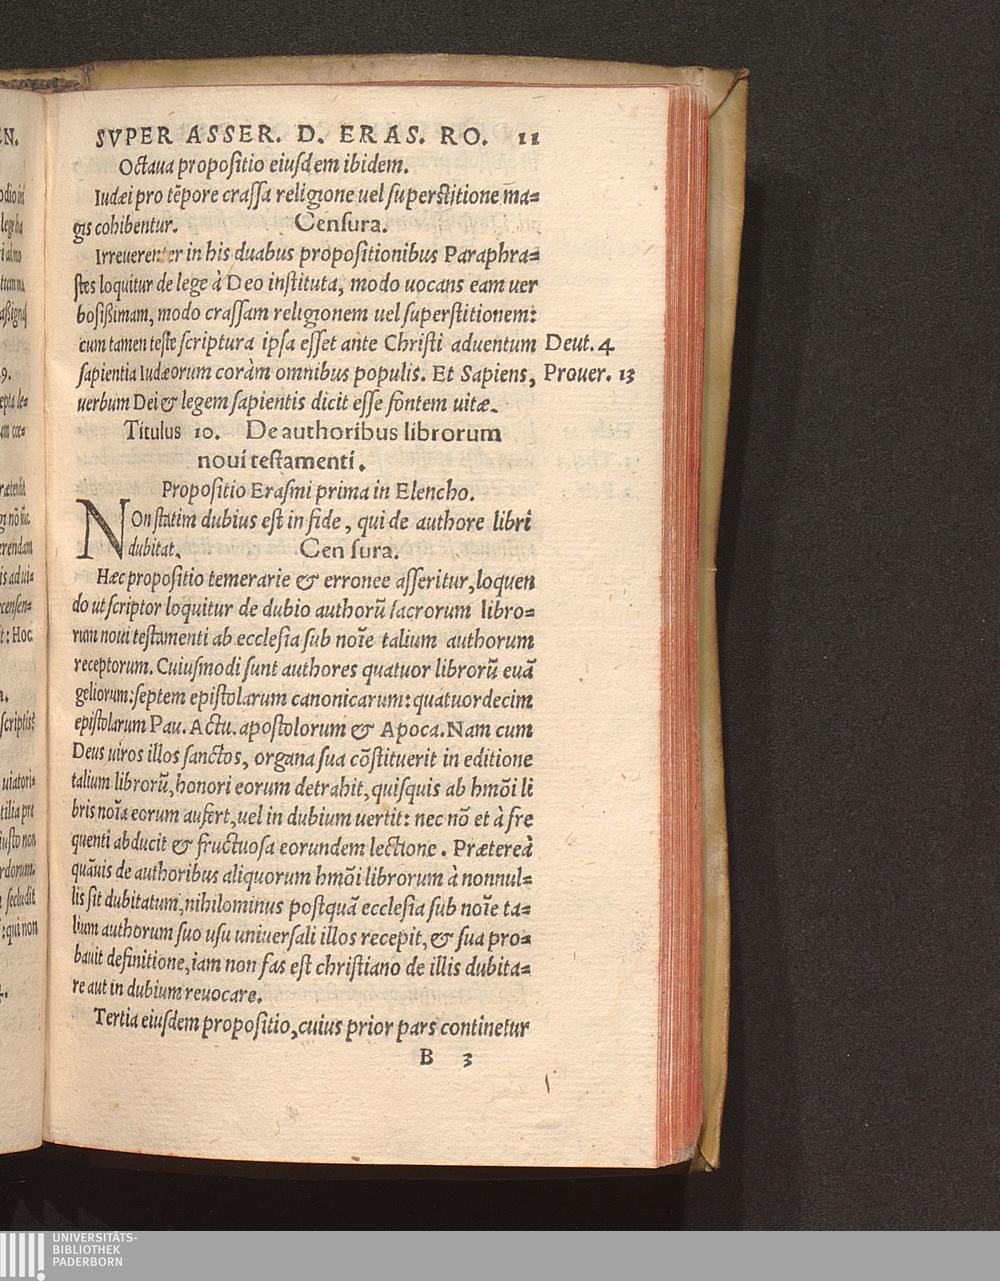 SVPER ASSER. D. ERAS. RO. 11
Octaua propositio eiusdem ibidem.
Iudæi pro tẽpore crassa religione uel superstitione ma=
gis cohibentur. Censura.
Irreuerenter in his duabus propositionibus Paraphra=
stes loquitur de lege à Deo instituta, modo uocans eam uer
bosißimam, modo crassam religionem uel superstitionem:
cum tamen teste scriptura ipsa esset ante Christi aduentum Deut. 4
sapientia Iudæorum coràm omnibus populis. Et Sapiens, Prouer. 13
uerbum Dei & legem sapientis dicit esse fontem uitæ.
Titulus 10. De authoribus librorum
noui testamenti.
Propositio Erasmi prima in Elencho.
NOn statim dubius est in fide, qui de authore libri
dubitat. Censura.
Hæc propositio temerarie & erronee asseritur, loquen
do ut scriptor loquitur de dubio authorũ sacrorum libro=
rum noui testamenti ab ecclesia sub noĩe talium authorum
receptorum. Cuiusmodi sunt authores quatuor librorũ euã
geliorum: septem epistolarum canonicarum: quatuordecim
epistolarum Pau. Actu. apostolorum & Apoca. Nam cum
Deus uiros illos sanctos, organa sua cõstituerit in editione
talium librorũ, honori eorum detrahit, quisquis ab hmõi li
bris noĩa eorum aufert, uel in dubium uertit: nec nõ et à fre
quenti abducit & fructuosa eorundem lectione. Prætereà
quãuis de authoribus aliquorum hmõi librorum à nonnul=
lis sit dubitatum, nihilominus postquã ecclesia sub noĩe ta=
lium authorum suo usu uniuersali illos recepit, & sua pro=
bauit definitione, iam non fas est christiano de illis dubita=
re aut in dubium reuocare.
Tertia eiusdem propositio, cuius prior pars continetur
B 3
UNIVERSITÄTS-
BIBLIOTHEK
PADERBORN